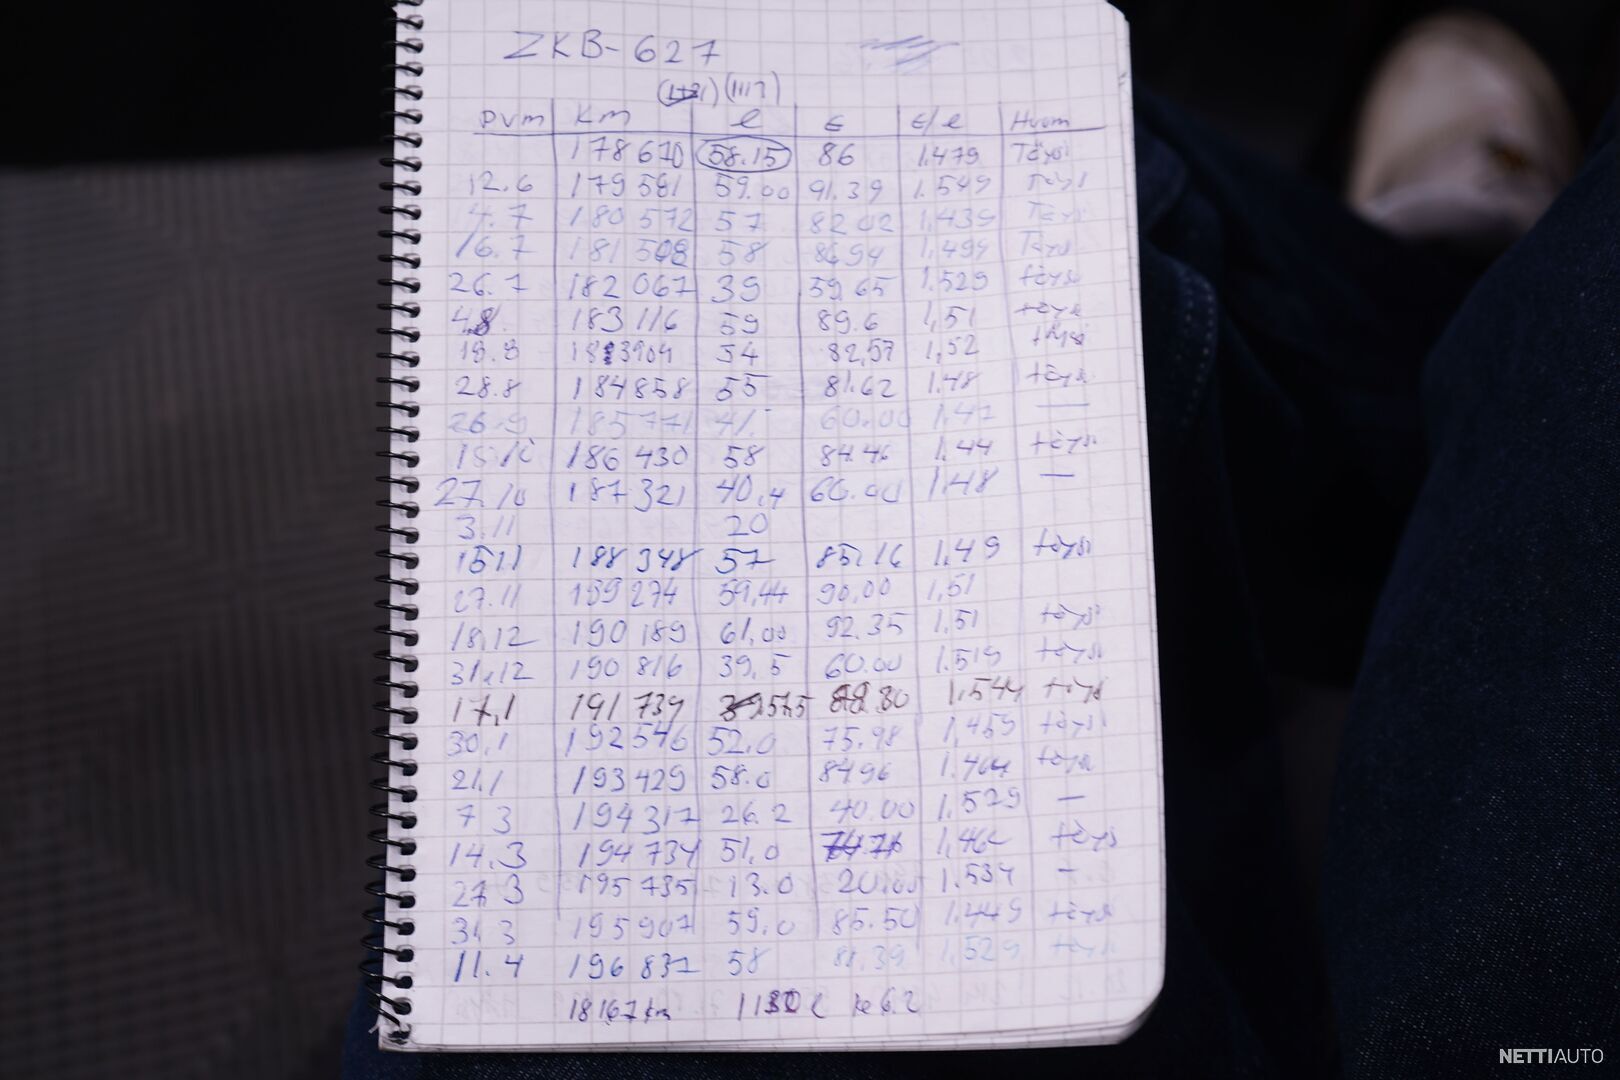 ZKB-627
(1113)
pvm Km l € €/l Huom
178670 58.15 86 1.479 Täysi
12.6 179581 59.00 91.39 1.549 Täysi
4.7 180572 57 82.02 1,439 Täysi
16.7 181508 58 86.94 1,499 Täysi
26.7 182067 39 59.65 1.529 täysi
4.8. 183116 59 89.6 1,51 täysi
183904 54 82,57 1,52 täysi
28.8 184858 55 81.62 1.48 täysi
26.9 185771 41.- 60.00 1,47 —
186430 58 84.46 1,44 täysi
27.10 187321 40,4 60.00 1,48 —
3.11 20
15.11 188348 57 85,16 1,49 täysi
27.11 189274 59,44 90,00 1,51
18.12 190189 61,00 92.35 1,51 täysi
31.12 190816 39,5 60.00 1.519 täysi
17.1 191739 57,5 88.80 1.544 täysi
30.1 192546 52.0 75.98 1,459 täysi
21.1 193429 58.0 84.96 1.464 täysi
7.3 194317 26.2 40.00 1.529 —
14.3 194734 51,0 1,464 täysi
27.3 195735 13.0 20.00 1.534 —
31.3 195907 59,0 85.50 1.449 täysi
11.4 196837 58 88,39 1,529 täysi
18167 km l 6.2
NETTIAUTO